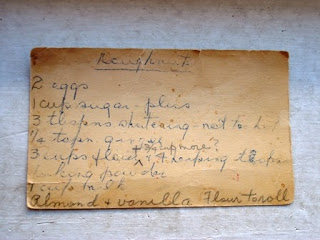 Doughnuts
2 eggs
1 cup sugar - plus
3 tbspns shortening - not too hot
½ tspn
+ ¾ cup more?
3 cups flour & 4 heaping tsps
baking powder
1 cup milk
Almond & vanilla Flour to roll